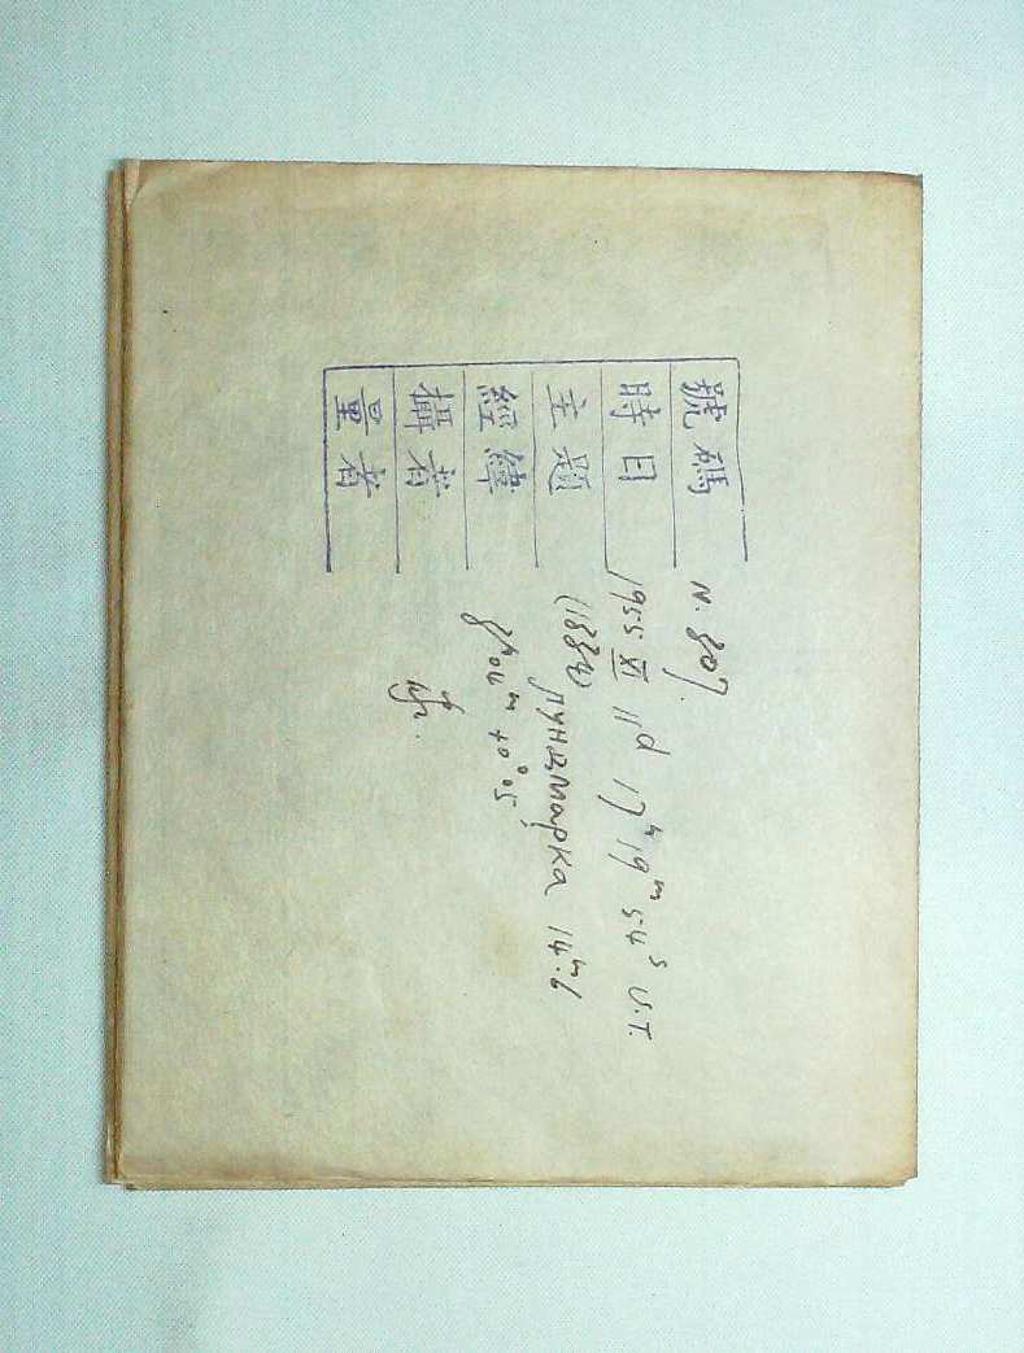 號碼 N. 807.
時日 1955 XI 11d 17h 19m 54s U.T.
主題 (1334) Лундмарка 14m.6
經緯 04m +0°05'
攝者
量者